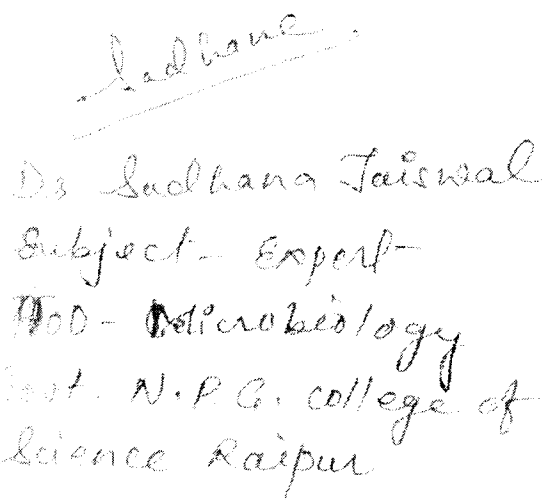 Sadhana
Dr Sadhana Jaiswal
Subject - Expert
HOD - Microbiology
Govt. N.P.G. college of
Science Raipur